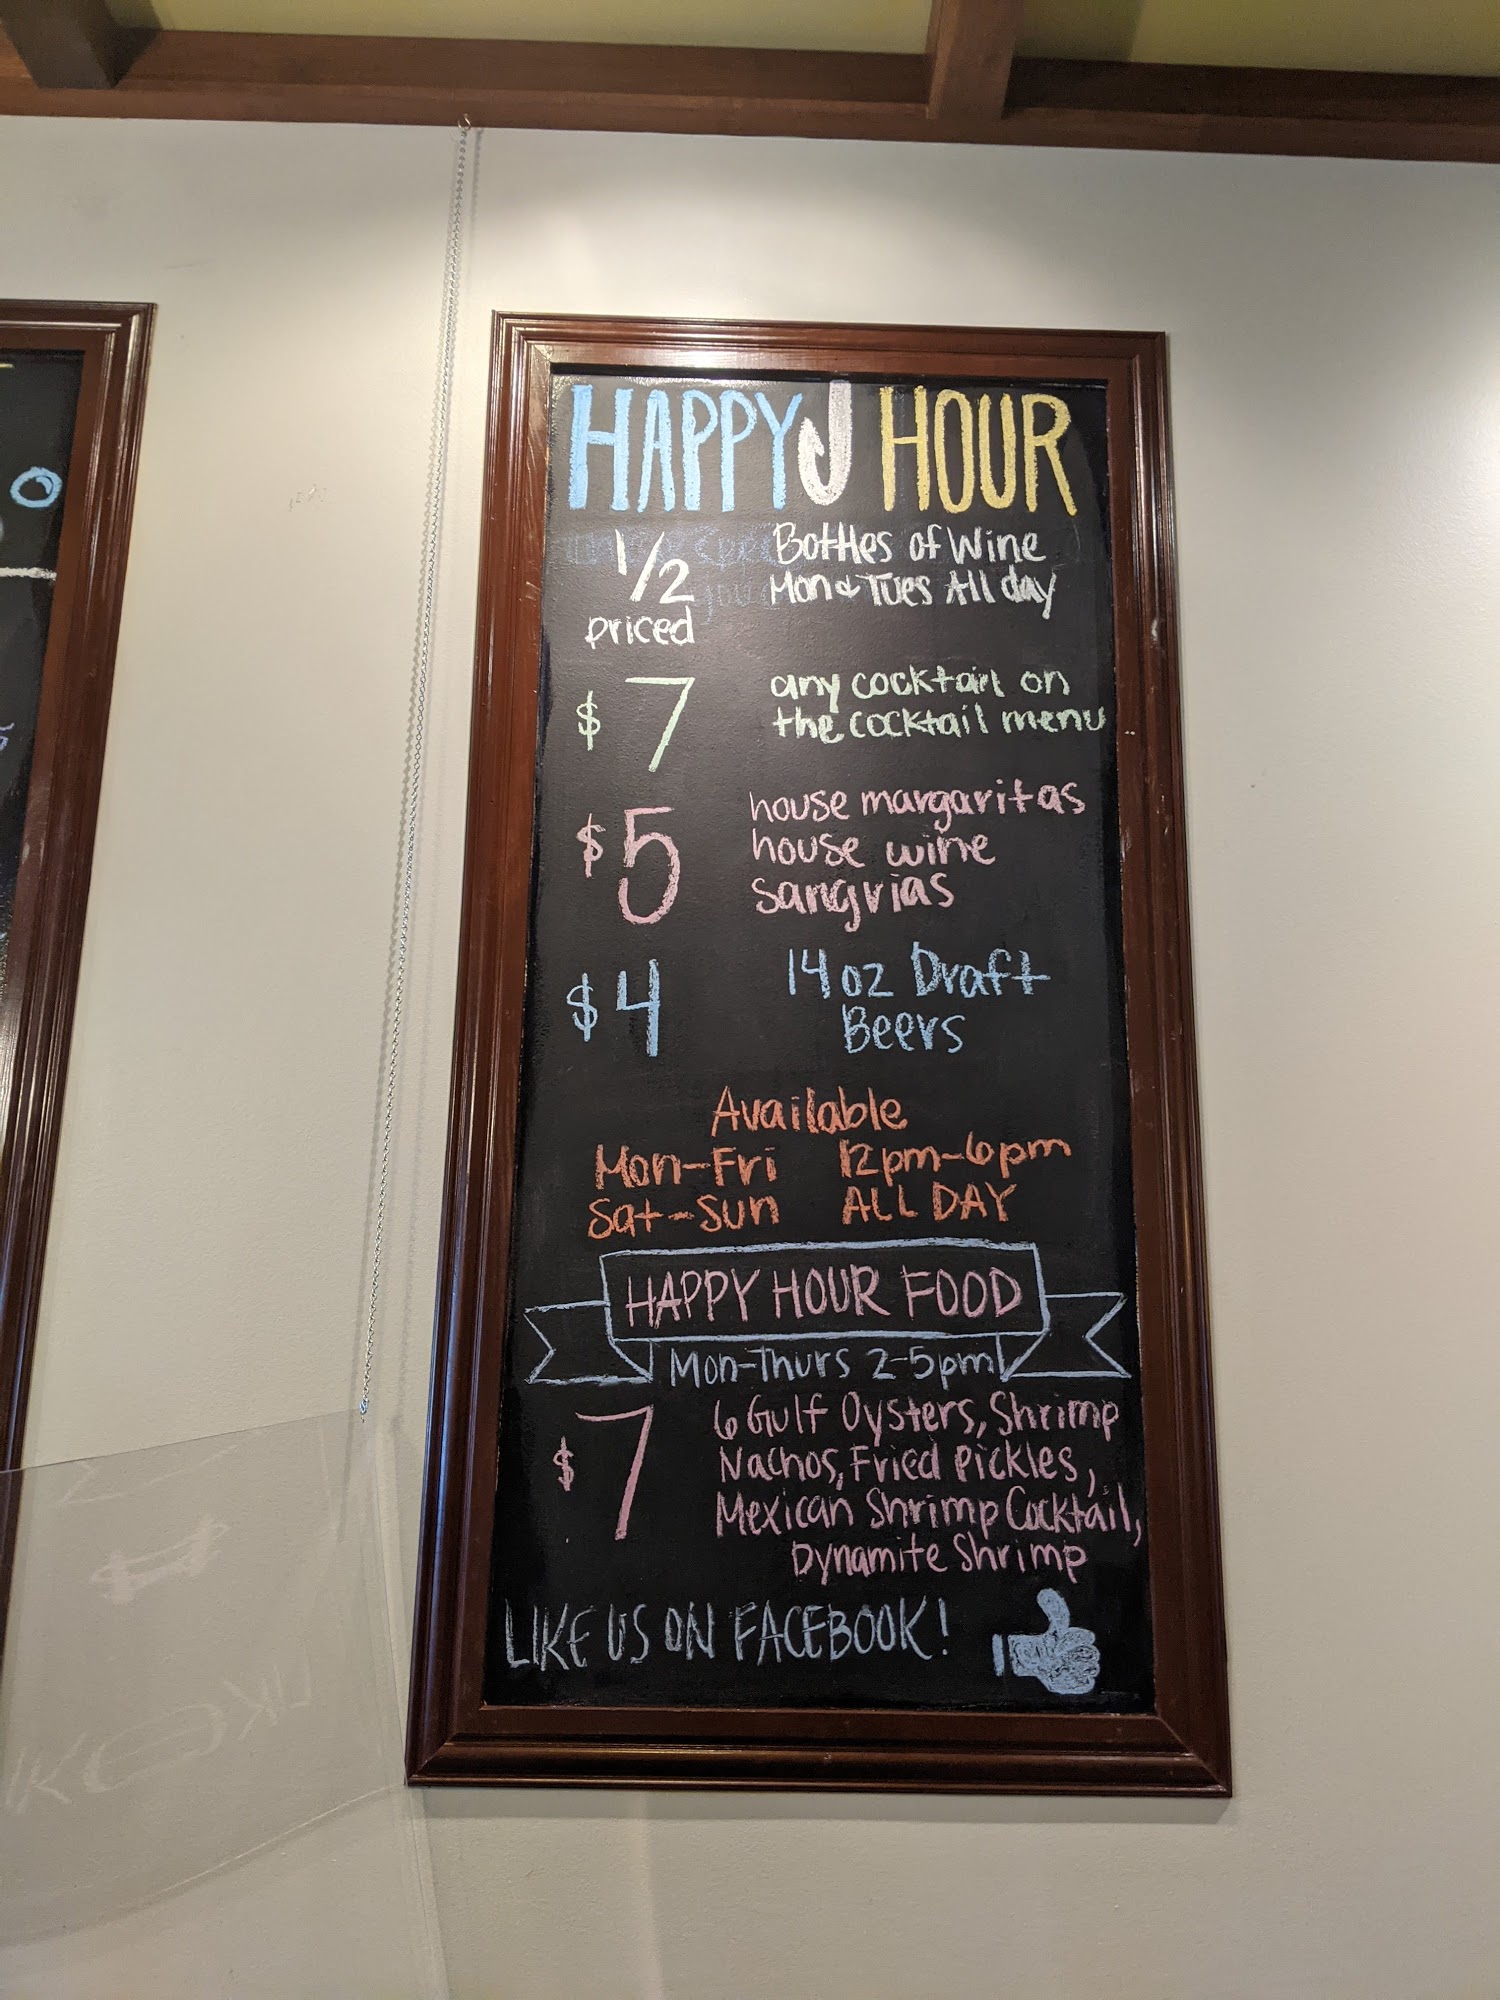 HAPPY J HOUR
1/2 priced Bottles of Wine
Mon & Tues All day
$7 any cocktail on
the cocktail menu
$5 house margaritas
house wine
sangrias
$4 14oz Draft
Beers
Available
Mon-Fri 12pm-6pm
Sat-Sun ALL DAY
HAPPY HOUR FOOD
Mon-Thurs 2-5pm
$7 6 Gulf Oysters, Shrimp
Nachos, Fried Pickles,
Mexican Shrimp Cocktail,
Dynamite Shrimp
LIKE US ON FACEBOOK!